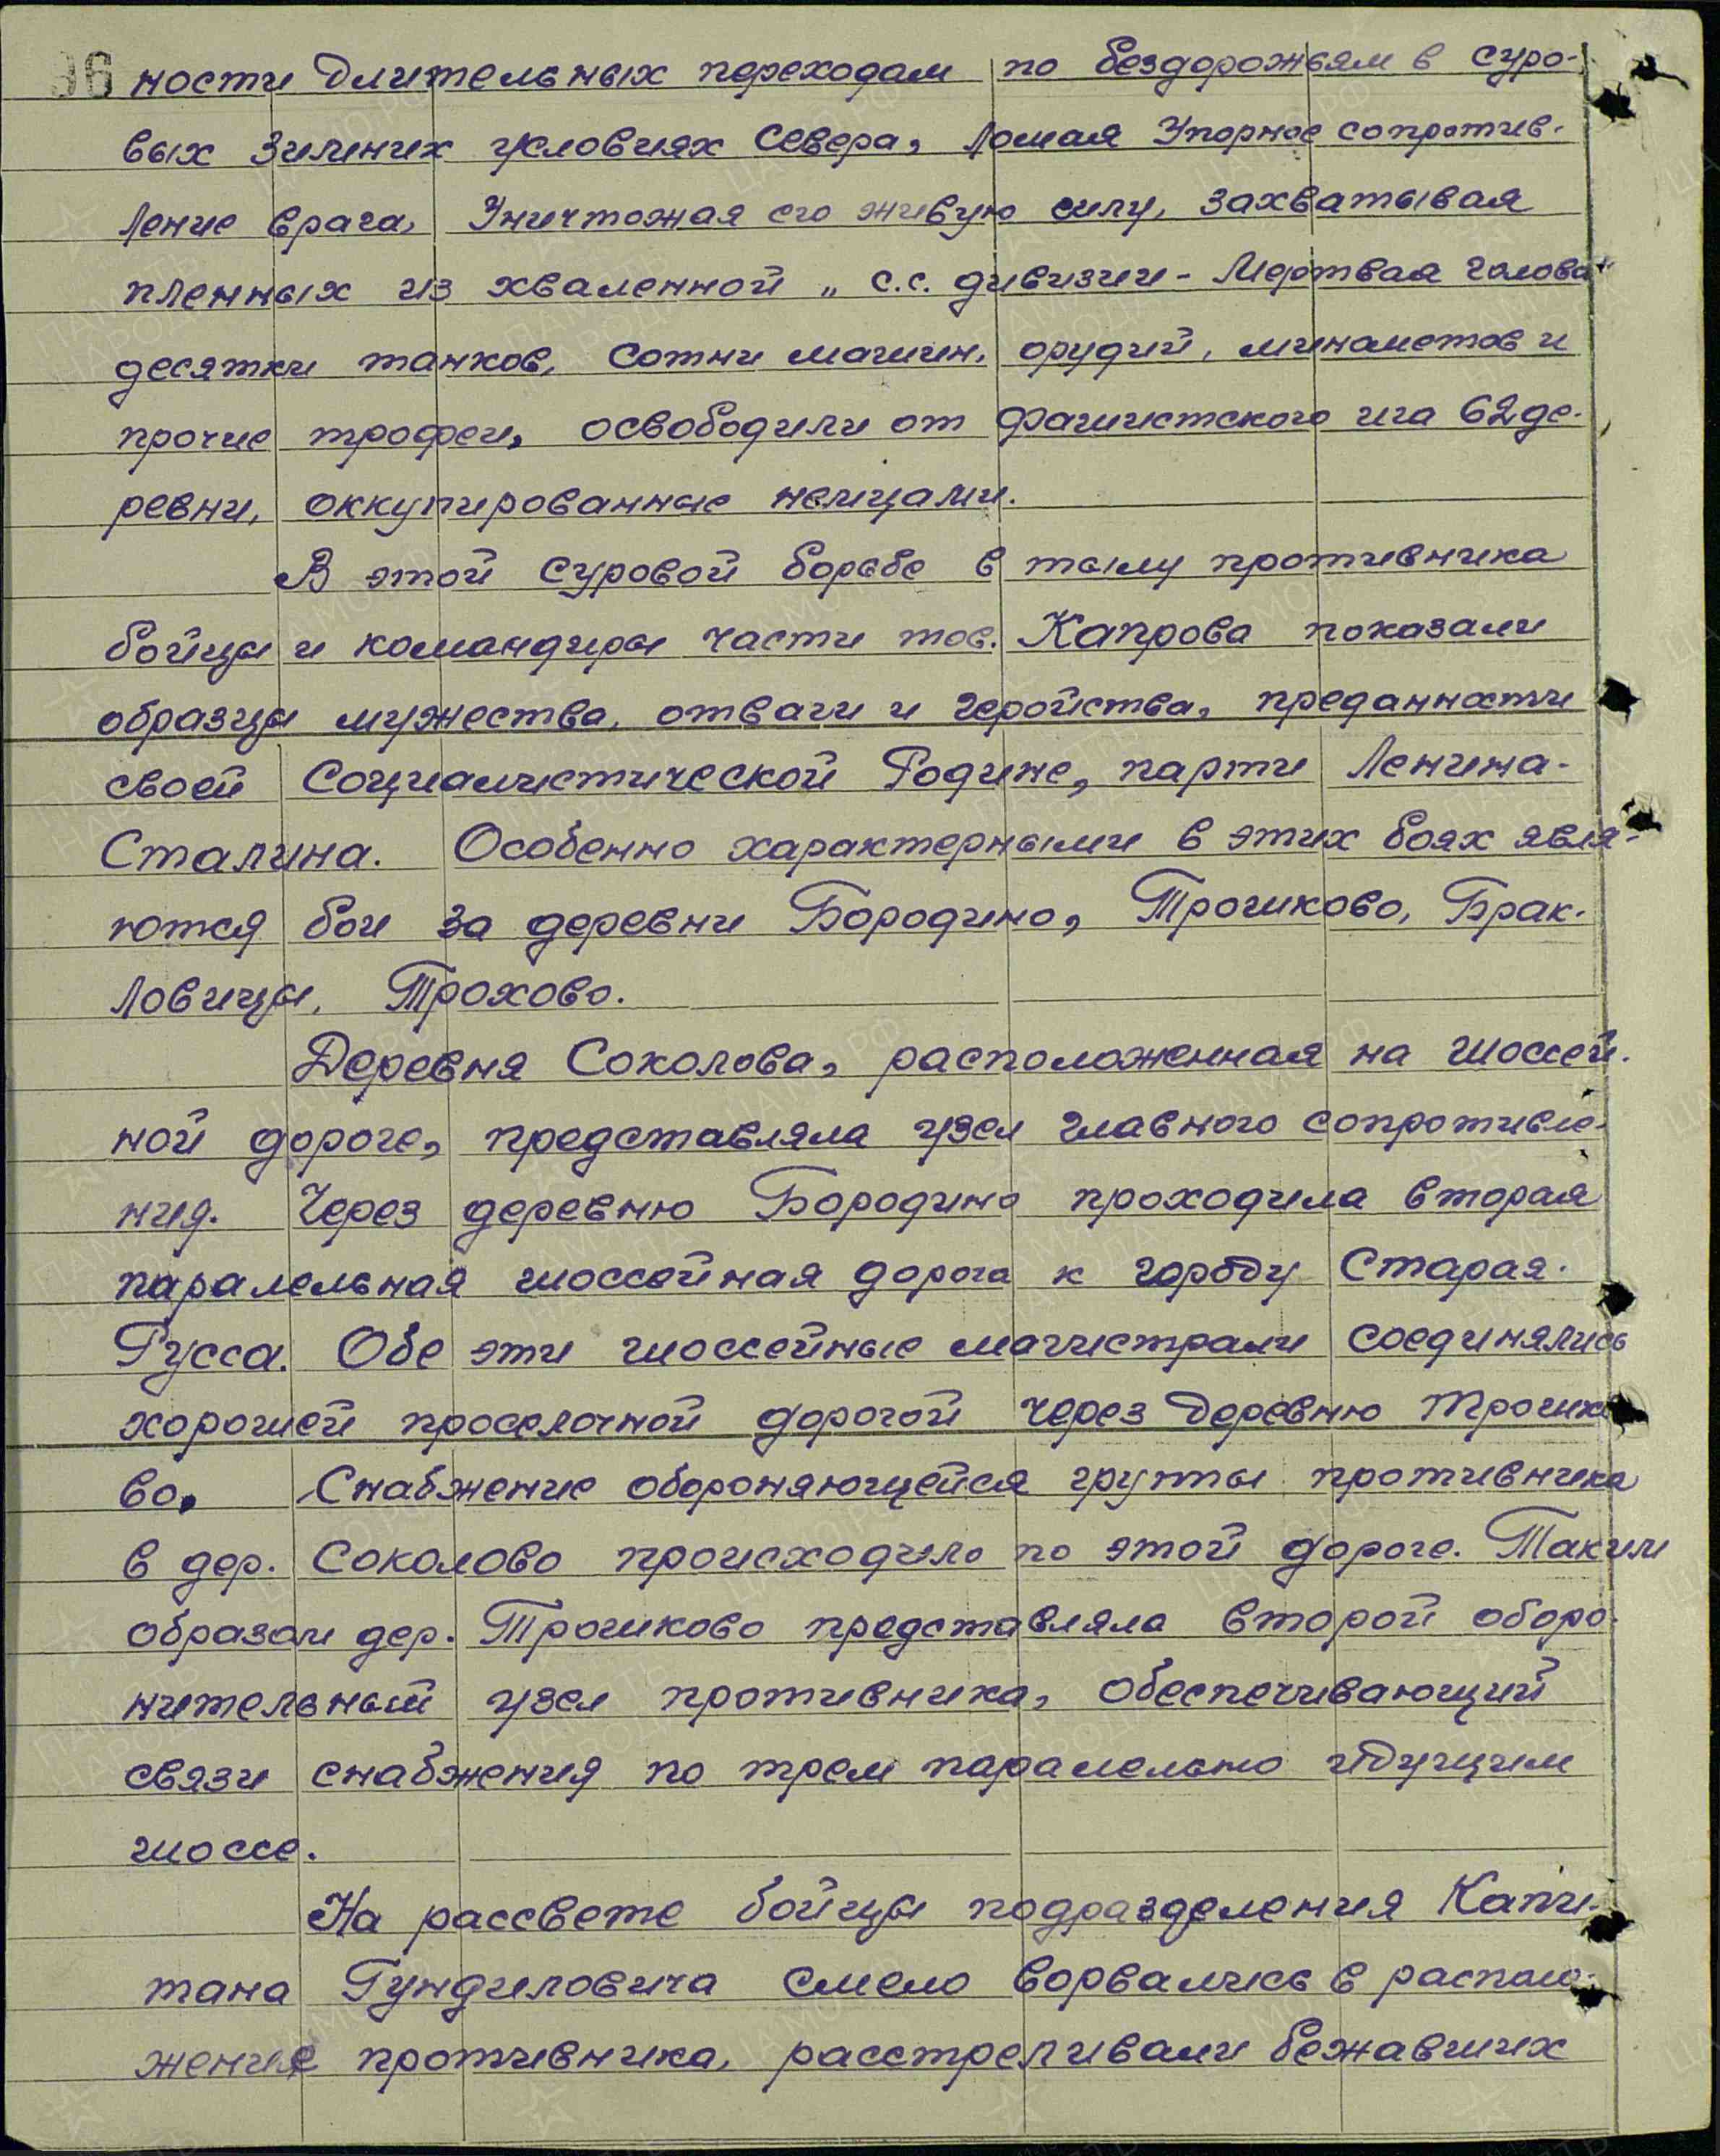 96 ности длительных переходам по бездорожьям в суро-
вых зимних условиях севера, ломая Упорное сопротив-
ление врага, Уничтожая его живую силу, захватывая
пленных из хваленной „с.с. дивизии - Мертвая голова"
десятки танков, сотни машин, орудий, минометов и
прочие трофеи, освободили от фашистского ига 62 де-
ревни, оккупированные немцами.
В этой суровой борьбе в тылу противника
бойцы и командиры части тов. Капрова показали
образцы мужества, отваги и геройства, преданности
своей Социалистической Родине, парти Ленина-
Сталина. Особенно характерными в этих боях явля-
ются бои за деревни Бородино, Трошково, Брак-
ловицы, Трохово.
Деревня Соколова, расположенная на шоссей-
ной дороге, представляла узел главного сопротивле-
ния. Через деревню Бородино проходила вторая
паралельная шоссейная дорога к городу Старая-
Русса. Обе эти шоссейные магистрали соединялись
хорошей проселочной дорогой через деревню Трошко
во. Снабжение обороняющейся группы противника
в дер. Соколово происходило по этой дороге. Таким
образом дер. Трошково представляла второй оборо-
нительный узел противника, обеспечивающий
связи снабжения по трем паралельно идущим
шоссе.
На рассвете бойцы подразделения Капи-
тана Гундиловича смело ворвались в располо-
жение противника, расстреливали бежавших